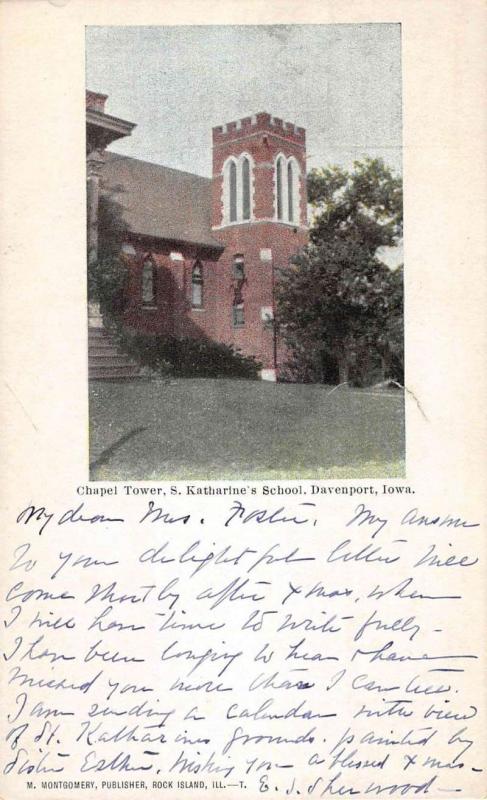 Chapel Tower, S. Katharine's School, Davenport, Iowa.
My dear Mrs. Foster, My answer
to your delightful letter will
come shortly after Xmas, when
I will have time to write fully -
I have been longing to hear & have
missed you more than I can tell.
I am sending a calendar with view
of St. Katharines grounds. painted by
Sister Esther, Wishing you a blessed Xmas -
E. S. Sherwood -
M. MONTGOMERY, PUBLISHER, ROCK ISLAND, ILL.—T.